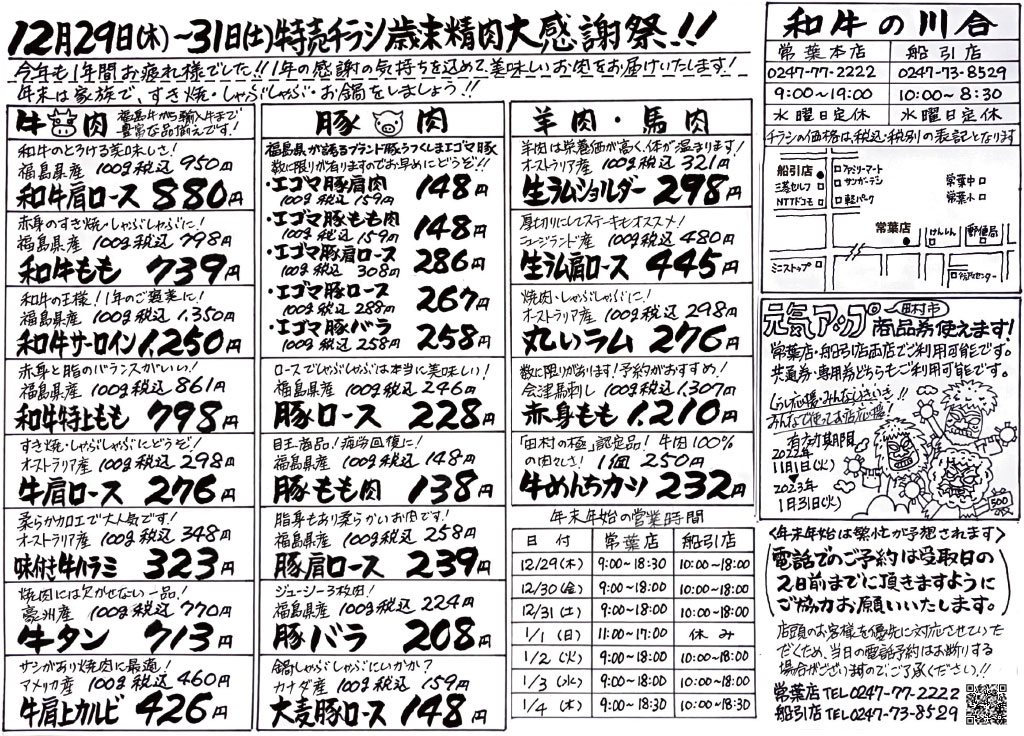 12月29日(木)~31日(土)特売チラシ歳末精肉大感謝祭!!
今年も1年間お疲れ様でした!!1年の感謝の気持ちを込めて、美味しいお肉をお届けいたします!
年末は家族で、すき焼・しゃぶしゃぶ・お鍋をしましょう!!
牛肉
福島牛から輸入牛まで
豊富な品揃えです!
和牛のとろける美味しさ!
福島県産 100g税込 950円
和牛肩ロース 880円
赤身のすき焼・しゃぶしゃぶに!
福島県産 100g税込 798円
和牛もも 739円
和牛の王様!1年のご褒美に!
福島県産 100g税込 1,350円
和牛サーロイン 1,250円
赤身と脂のバランスがいい!
福島県産 100g税込 861円
和牛特上もも 798円
すき焼・しゃぶしゃぶにどうぞ!
オーストラリア産 100g税込 298円
牛肩ロース 276円
柔らか加工で大人気です!
オーストラリア産 100g税込 348円
味付き牛ハラミ 323円
焼肉には欠かせない一品!
豪洲産 100g税込 770円
牛タン 713円
サシがあり焼肉に最適!
アメリカ産 100g税込 460円
牛肩上カルビ 426円
豚肉
福島県が誇るブランド豚うつくしまエゴマ豚
数に限りが有りますのでお早めにどうぞ!!
・エゴマ豚肩肉 148円
100g税込 159円
・エゴマ豚もも肉 148円
100g税込 159円
・エゴマ豚肩ロース 286円
100g税込 308円
・エゴマ豚ロース 267円
100g税込 288円
・エゴマ豚バラ 258円
100g税込 258円
ロースでしゃぶしゃぶは本当に美味しい!
福島県産 100g税込 246円
豚ロース 228円
目玉商品!疲労回復に!
福島県産 100g税込 148円
豚もも肉 138円
脂身もあり柔らかいお肉です!
福島県産 100g税込 258円
豚肩ロース 239円
ジューシー3枚肉!
福島県産 100g税込 224円
豚バラ 208円
鍋しゃぶしゃぶにいかが?
カナダ産 100g税込 159円
大麦豚ロース 148円
羊肉・馬肉
羊肉は栄養価が高く、体が温まります!
オーストラリア産 100g税込 321円
生ラムショルダー 298円
厚切りにしてステーキもオススメ!
ニュージランド産 100g税込 480円
生ラム肩ロース 445円
焼肉・しゃぶしゃぶに!
オーストラリア産 100g税込 298円
丸いラム 276円
数に限りがあります!予約がおすすめ!
会津馬刺し 100g税込 1,307円
赤身もも 1,210円
「田村の極」認定品!牛肉100%
の肉々しさ! 1個 250円
牛めんちカツ 232円
年末年始の営業時間
日付 常葉店 船引店
12/29(木) 9:00~18:30 10:00~18:00
12/30(金) 9:00~18:00 10:00~18:00
12/31(土) 9:00~18:00 10:00~18:00
1/1(日) 11:00~17:00 休み
1/2(火) 9:00~18:00 10:00~18:00
1/3(水) 9:00~18:00 10:00~18:00
1/4(木) 9:00~18:30 10:00~18:30
和牛の川合
常葉本店 船引店
0247-77-2222 0247-73-8529
9:00~19:00 10:00~8:30
水曜日定休 水曜日定休
チラシの価格は税込・税別の表記となります
船引店
三菱セルフ
NTTドコモ
ファミリーマート
サンガーデン
軽パーク
常葉中
常葉小
常葉店
けんしん
郵便局
ミニストップ
行政センター
元気アップ
田村市
商品券使えます!
常葉店・船引店両店でご利用可能です。
共通券・専用券どちらもご利用可能です。
みんなで使ってお店応援!
有効期間
2022年
11月1日(火)
▼
2023年
1月31日(火)
500
<年末年始は繁忙が予想されます>
電話でのご予約は受取日の
2日前までに頂きますように
ご協力お願いいたします。
店頭のお客様を優先に対応させていた
だくため、当日の電話予約はお断りする
場合がございますので、ご了承ください!!
常葉店 TEL0247-77-2222
船引店 TEL0247-73-8529